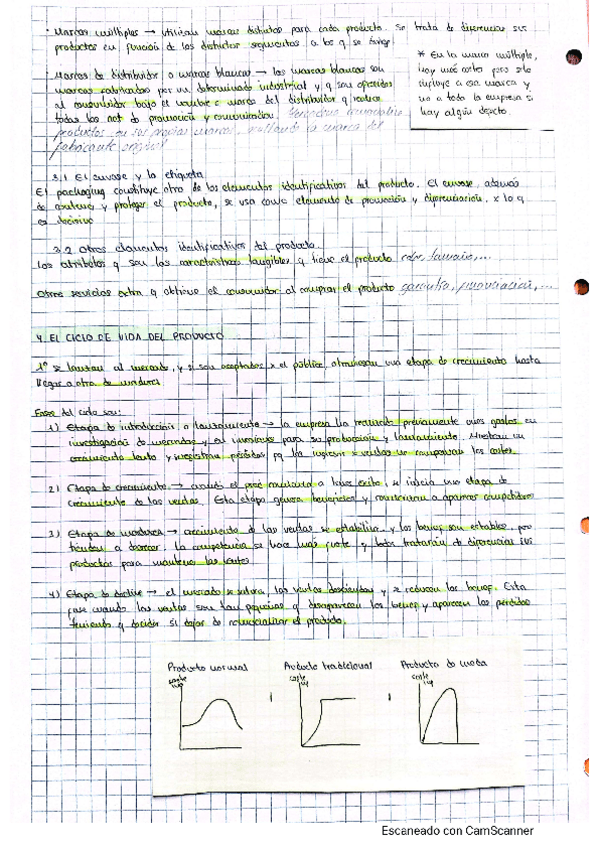 · Marcas múltiples → utilizan marcas distintas para cada producto. Se trata de diferenciar sus
productos en función de los distintos segmentos a los q se dirige
* En la marca múltiple,
hay más costes pero solo
influye a esa marca y
no a toda la empresa si
hay algún defecto.
· Marcas de distribuidor o marcas blancas → las marcas blancas son
marcas fabricadas por un determinado industrial y q son ofrecidas
al consumidor bajo el nombre o marca del distribuidor q realiza
todas las act de promoción y comunicación.
productos en sus propias marcas, la marca del
fabricante original
3.1 El envase y la etiqueta
El packaging constituye otro de los elementos identificativos del producto. El envase, además
de contener y proteger el producto, se usa como elemento de promoción y diferenciación, x lo q
es decisivo
3.2 Otros elementos identificativos del producto
Los atributos q son las características tangibles q tiene el producto color, tamaño, ...
Otros servicios extra q obtiene el consumidor al comprar el producto garantía, financiación, ...
4. EL CICLO DE VIDA DEL PRODUCTO
1º se lanzan al mercado, y si son aceptados x el público, atraviesan una etapa de crecimiento hasta
llegar a otra de madurez
Fases del ciclo son:
1) Etapa de introducción o lanzamiento → la empresa ha realizado previamente unos gastos en
investigación de mercados y en inversiones para su producción y lanzamiento. Muestran un
crecimiento lento y registran pérdidas pq los ingresos x ventas no compensan los costes.
2) Etapa de crecimiento → cuando el prod comienza a tener éxito, se inicia una etapa de
crecimiento de las ventas. Esta etapa genera beneficios y comienzan a aparecer competidores
3) Etapa de madurez → crecimiento de las ventas se estabiliza y los benef son estables pero
tienden a bajar. La competencia se hace más fuerte y todos tratarán de diferenciar sus
productos para mantener las ventas
4) Etapa de declive → el mercado se satura, las ventas descienden y se reducen los benef. Esta
fase cuando las ventas son tan pequeñas q desaparecen los benef y aparecen las pérdidas
teniendo q decidir si dejar de comercializar el producto.
Producto normal
Producto tradicional
Producto de moda
Escaneado con CamScanner